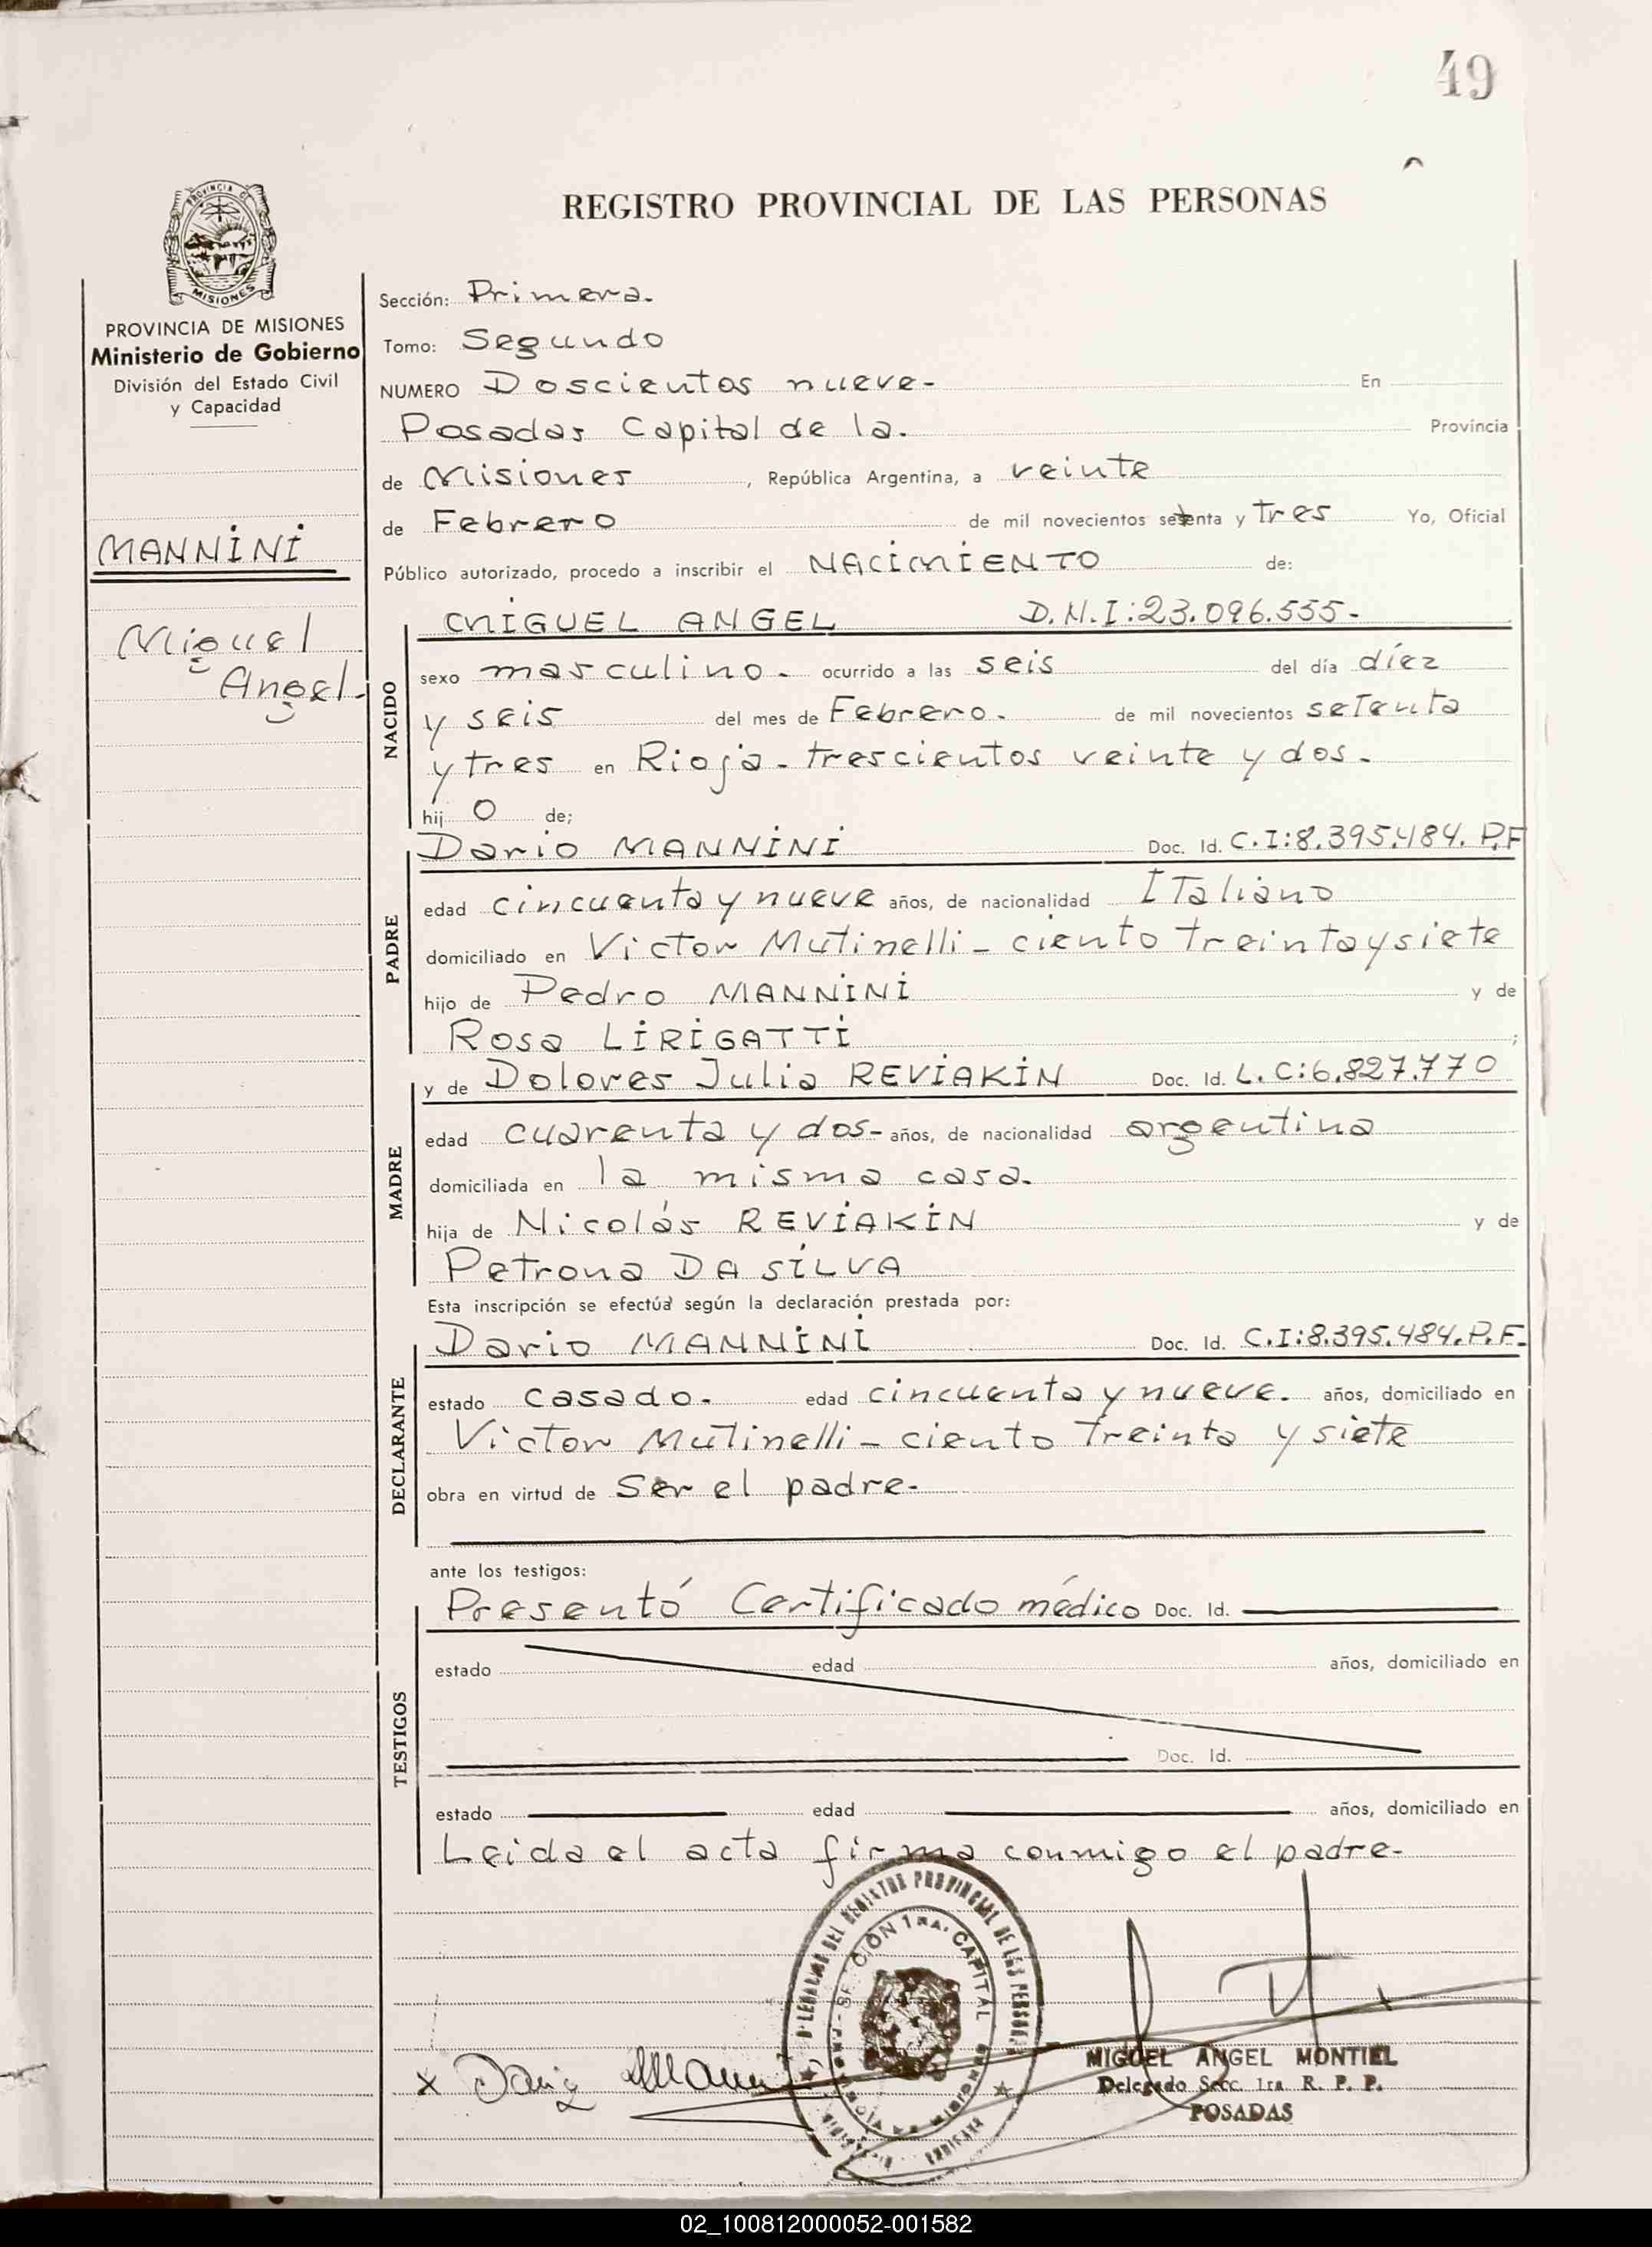 49
REGISTRO PROVINCIAL DE LAS PERSONAS
PROVINCIA DE MISIONES
Ministerio de Gobierno
División del Estado Civil
y Capacidad
MANNINI
Miguel
Angel.
Sección: Primera.
Tomo: Segundo
NUMERO Doscientos nueve- En
Posadas Capital de la. Provincia
de Misiones, República Argentina, a veinte
de Febrero de mil novecientos setenta y tres Yo, Oficial
Público autorizado, procedo a inscribir el NACIMIENTO de:
NACIDO
MIGUEL ANGEL D.N.I:23.096.555-
sexo masculino. ocurrido a las seis del día díez
y seis del mes de Febrero. de mil novecientos setenta
y tres en Rioja - trescientos veinte y dos.
hij o de;
PADRE
Dario MANNINI Doc. Id. C.I:8.395.484. P.F
edad cincuenta y nueve años, de nacionalidad ITaliano
domiciliado en Victor Mutinelli - ciento treinta y siete
hijo de Pedro MANNINI y de
Rosa LIRIGATTI ;
MADRE
y de Dolores Julia REVIAKIN Doc. Id. L.C:6.827.770
edad cuarenta y dos- años, de nacionalidad argentina
domiciliada en la misma casa.
hija de Nicolás REVIAKIN y de
Petrona DA SILVA
Esta inscripción se efectúa según la declaración prestada por:
DECLARANTE
Dario MANNINI Doc. Id. C.I:8.395.484.P.F.
estado casado. edad cincuenta y nueve. años, domiciliado en
Victor Mutinelli - ciento Treinta y siete
obra en virtud de Ser el padre.
ante los testigos:
TESTIGOS
Presentó Certificado médico Doc. Id.
estado edad años, domiciliado en
Doc. Id.
estado edad años, domiciliado en
Leida el acta firma conmigo el padre.
DEL REGISTRO PROVINCIAL DE LAS PERSONAS
SECCIÓN 1ra. CAPITAL
x Dario Mannini
MIGUEL ANGEL MONTIEL
Delegado Secc. 1ra R. P. P.
POSADAS
02_100812000052-001582